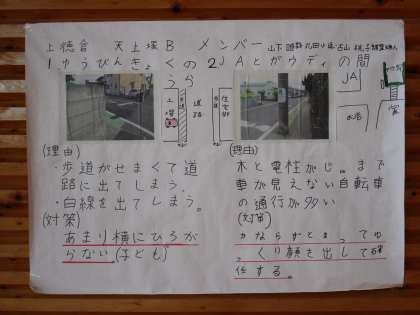 上徳倉 天王塚B メンバー
1 ゆうびんきょくのうら
2 JAとガウディの間
上塚
歩道
道路
歩道
住宅
JA
(理由)
・歩道がせまくて道
路に出てしまう。
・白線を出てしまう。
(対策)
あまり横にひろが
らない(子ども)
(理由)
木と電柱がじゃまで
車が見えない自転車
の通行が多い
(対策)
かならずとまってゆ
っくり顔を出して確
任する。